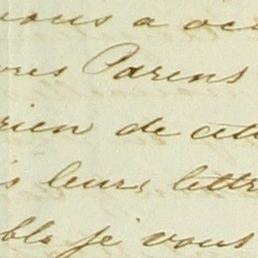 vous a occ
vres Parens
rien de cett
s leurs lettr
ble je vous